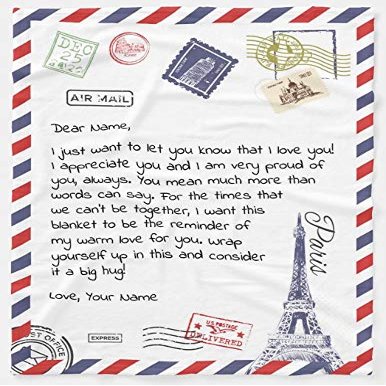 DEC
25
AIR MAIL
Dear Name,
I just want to let you know that I love you!
I appreciate you and I am very proud of
you, always. You mean much more than
words can say. For the times that
we can't be together, I want this
blanket to be the reminder of
my warm love for you. wrap
yourself up in this and consider
it a big hug!
Love, Your Name
Paris
U.S. POSTAGE
DELIVERED
EXPRESS
POST OFFICE